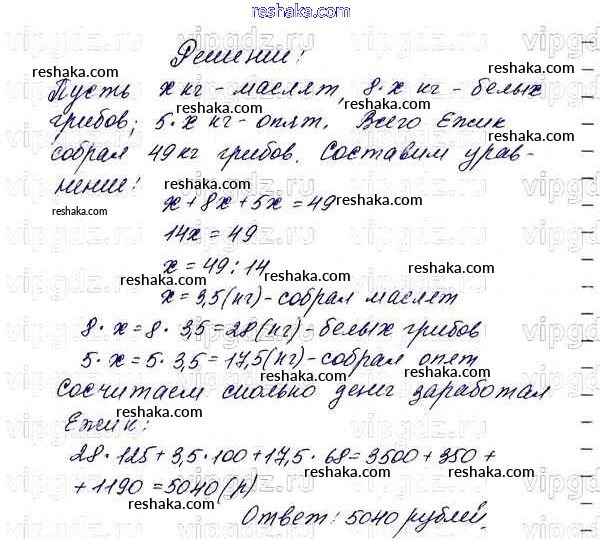 reshaka.com
Решение!
Пусть х кг - маслят, 8·х кг - белых
грибов; 5·х кг - опят. Всего Ежик
собрал 49 кг грибов. Составим урав-
нение!
х + 8х + 5х = 49
14х = 49
х = 49 : 14
х = 3,5 (кг) - собрал маслят
8·х = 8·3,5 = 28 (кг) - белых грибов
5·х = 5·3,5 = 17,5 (кг) - собрал опят
Сосчитаем сколько денег заработал
Ежик:
28·125 + 3,5·100 + 17,5·68 = 3500 + 350 +
+ 1190 = 5040 (р)
Ответ: 5040 рублей